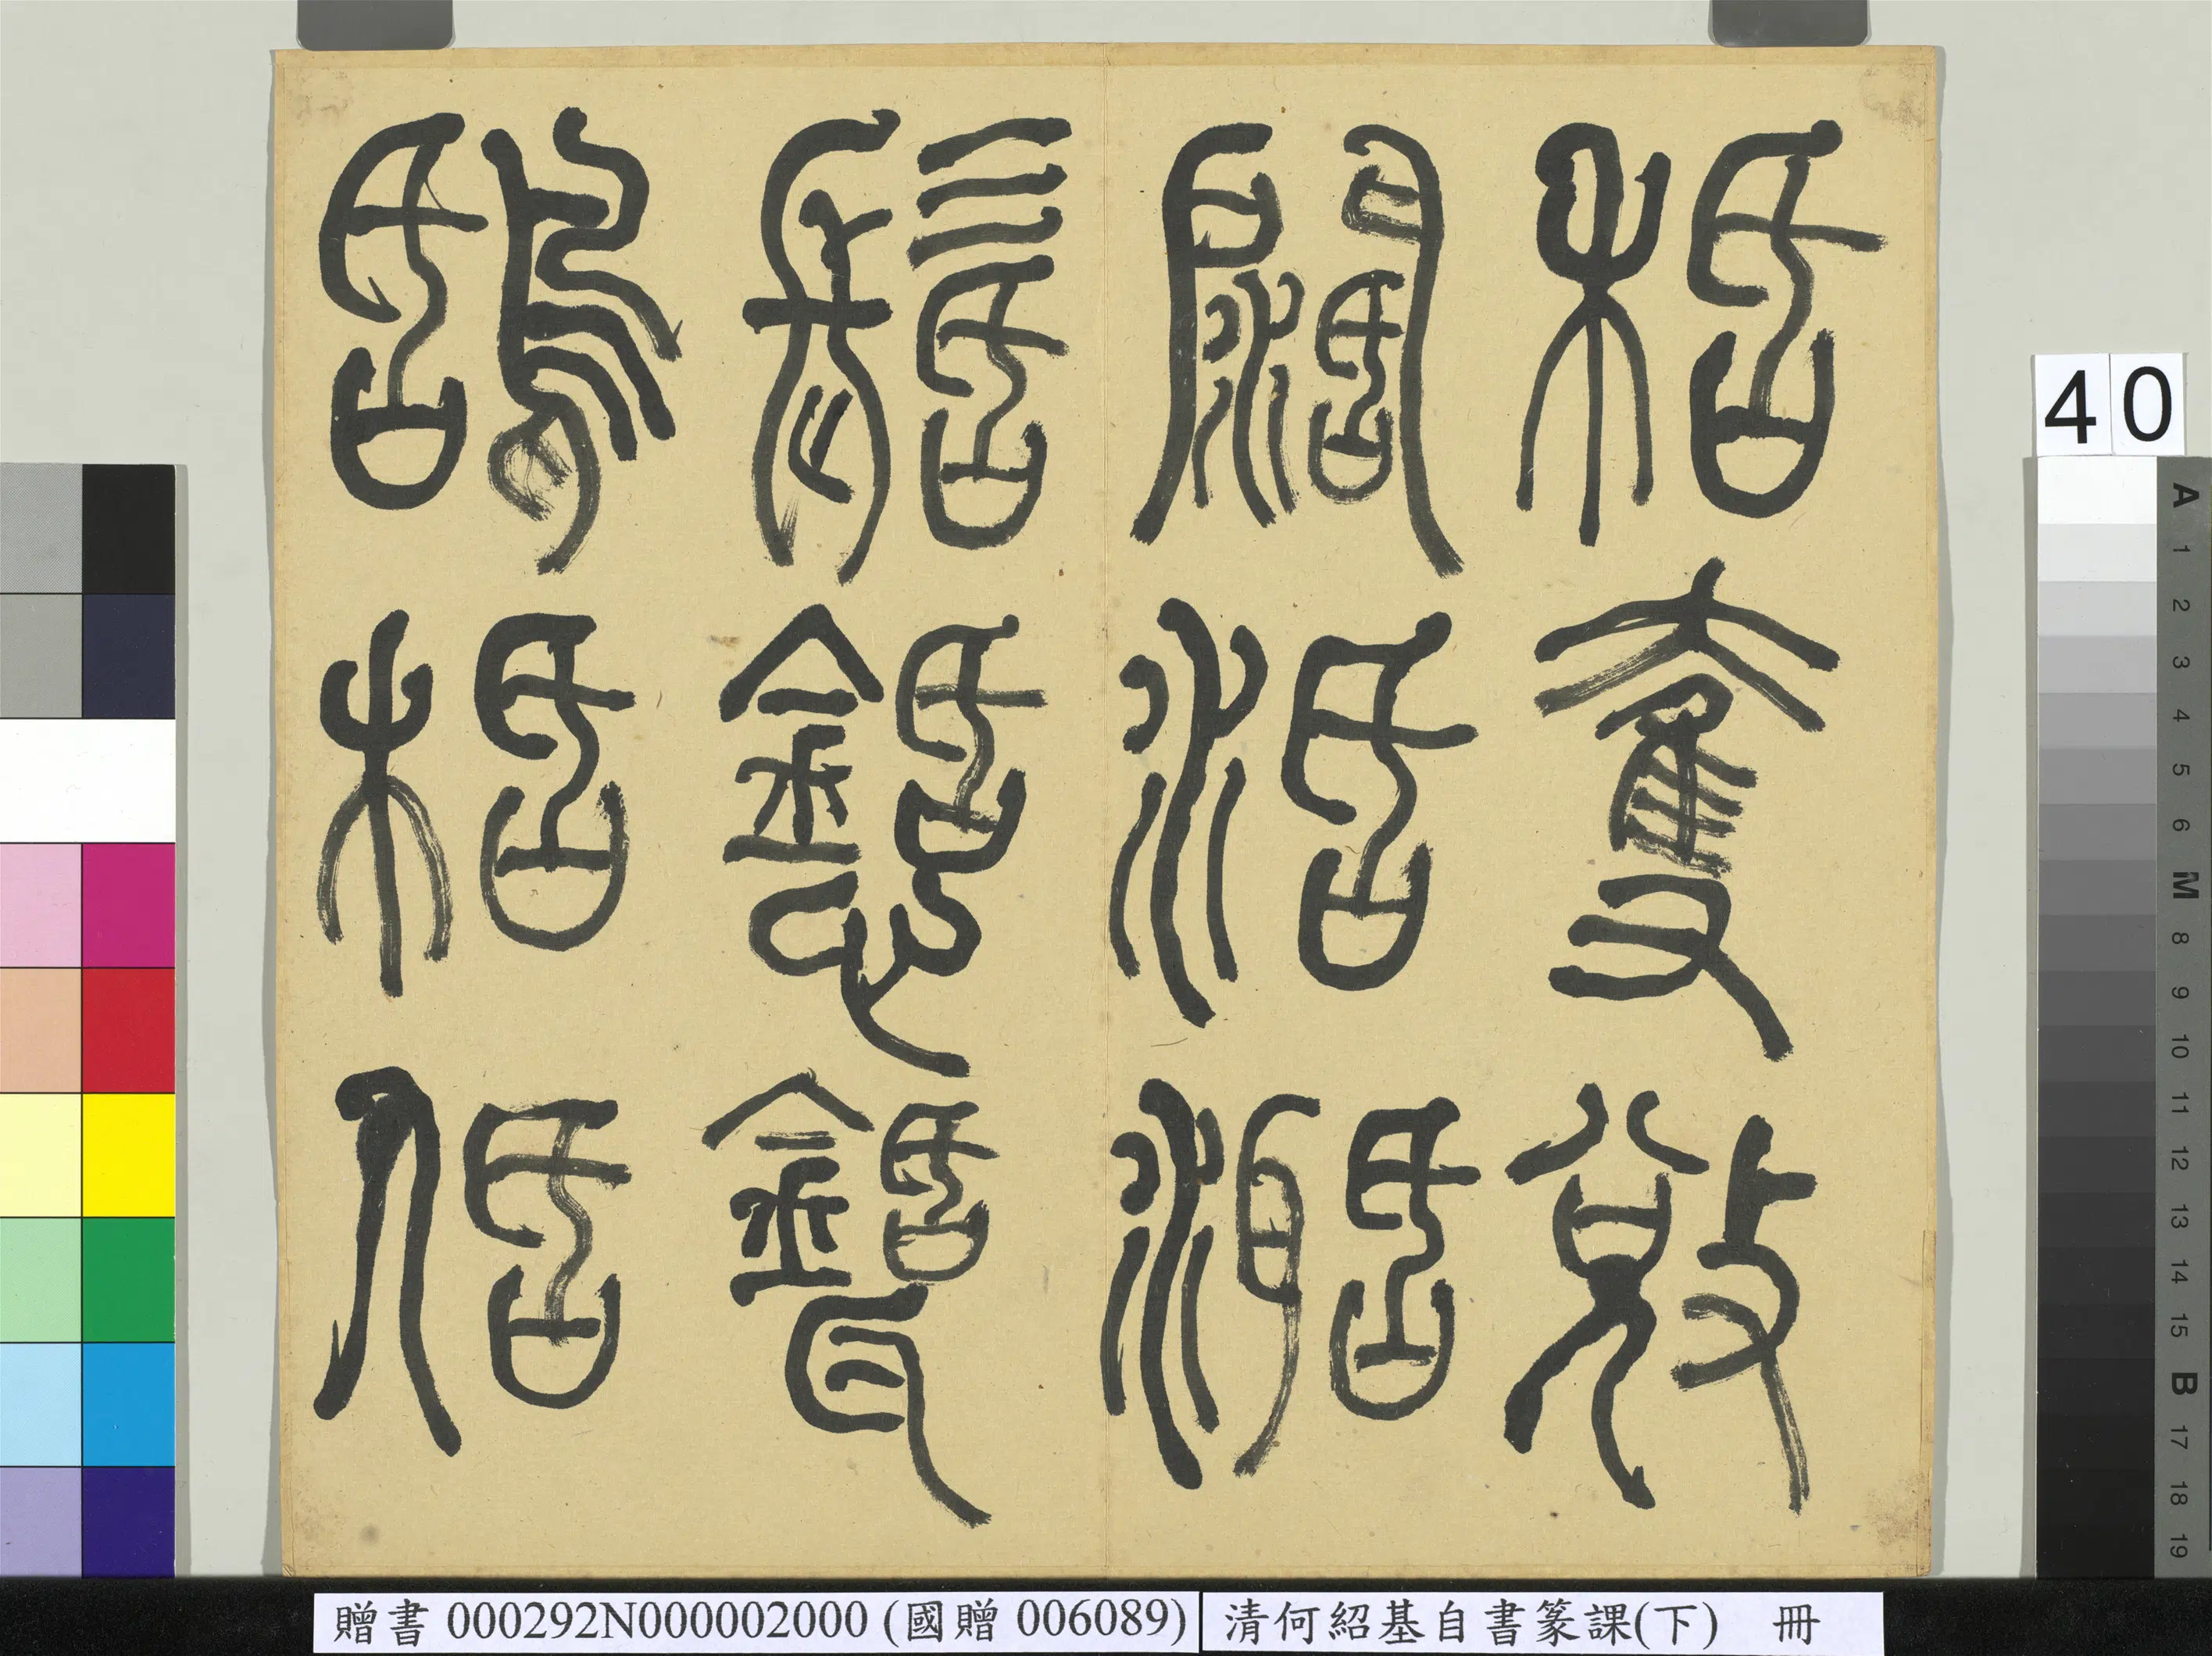 栝奪敓
闊活
髺懖
鴰栝佸
40
A 1 2 3 4 5 6 M 8 9 10 11 12 13 14 15 B 17 18 19
贈書 000292N000002000 (國贈 006089) 清何紹基自書篆課(下) 冊